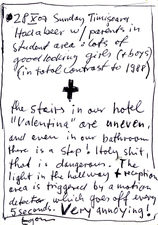 28 X 07 Sunday Timişoara.
Had a beer w/ parents in
student area & lots of
good looking girls (& boys)
(in total contrast to 1988)
+
the stairs in our hotel
"Valentina" are uneven,
and even in our bathroom
there is a step! Holy shit,
that is dangerous. The
light in the hallway & reception
area is triggered by a motion
detector which goes off every
5 seconds. Very annoying!